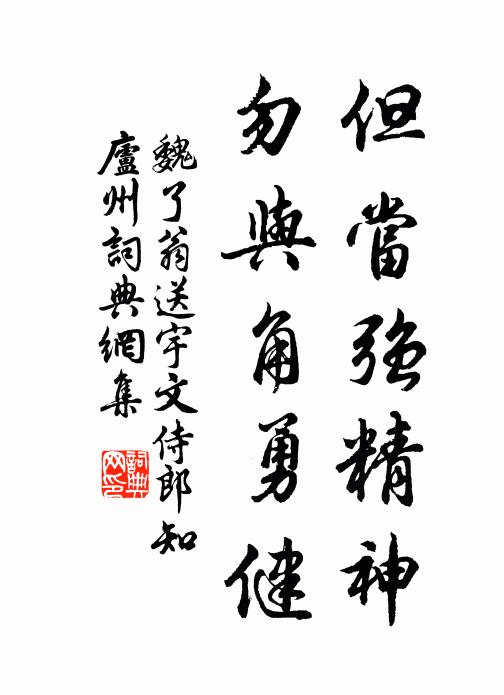 但當強精神
勿與角勇健
魏了翁送宇文侍郎知
廬州詞典網集
詞典網印